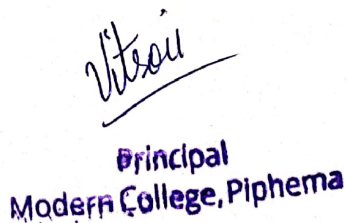 Vitsoii
Principal
Modern College, Piphema